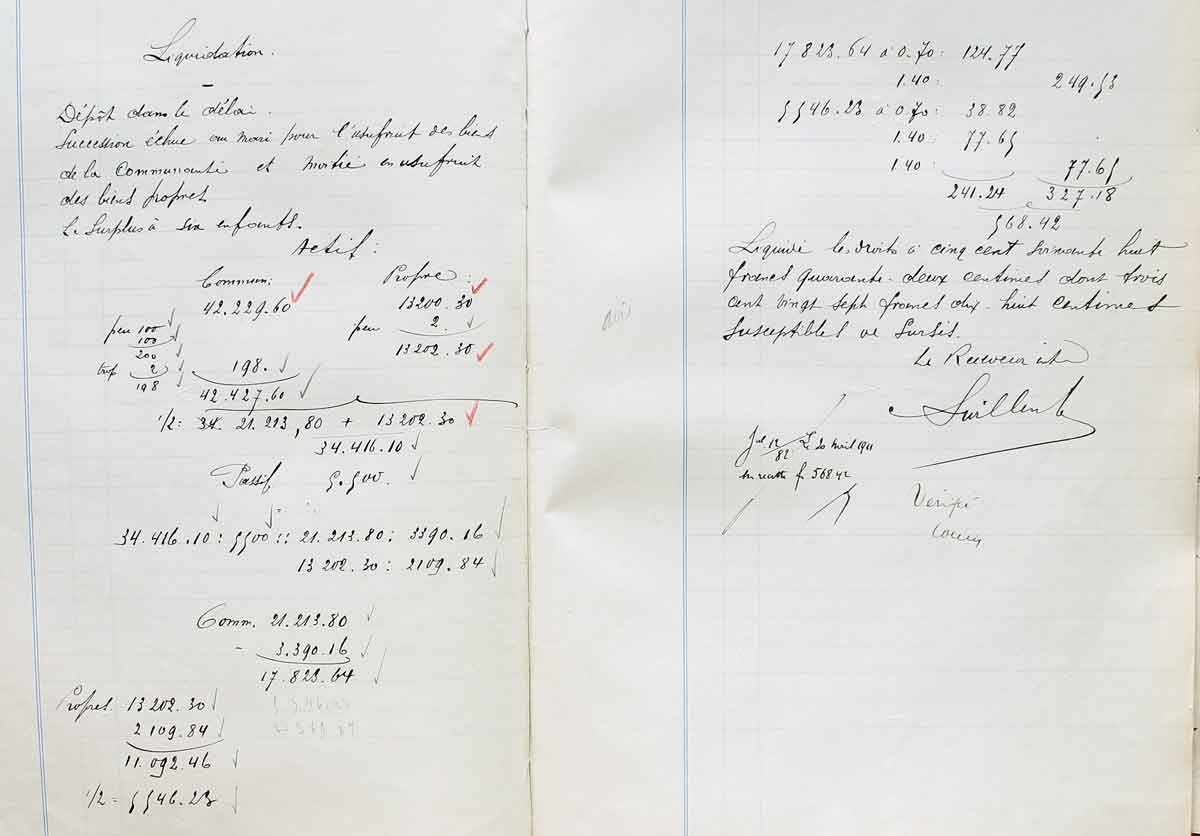 Liquidation.
Dépôt dans le délai.
Succession échue au mari pour l'usufruit des biens
de la Communauté et Moitié en usufruit
des biens propres
Le Surplus à six enfants.
Actif:
Commun: Propre:
42.229.60 13200.30
peu 100 peu 2.
100 13202.30
200
trop 2 198.
198 42.427.60
1/2: 34. 21.213,80 + 13202.30
34.416.10
Passif 5.500.
34.416.10: 5500 :: 21.213.80: 3390.16
13202.30: 2109.84
Comm. 21.213.80
- 3.390.16
17.823.64
Propres 13202.30
2109.84
11.092.46
1/2 = 5546.23
17823.64 à 0.70: 124.77
1.40: 249.53
5546.23 à 0.70: 38.82
1.40: 77.65
1.40: 77.65
241.24 327.18
568.42
Liquidé les droits à cinq cent soixante huit
francs quarante-deux centimes dont trois
cent vingt sept francs dix-huit centimes
susceptibles de Sursis.
Le Receveur
12/82 Le 20 avril 1911
en recette f. 568.42
Vérifié